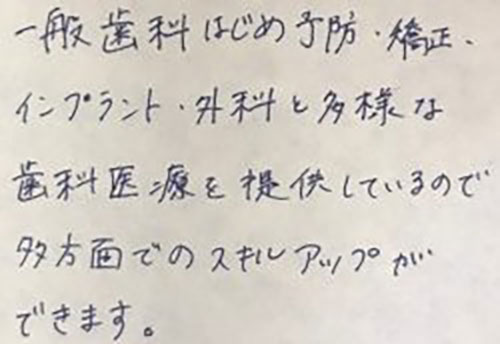 一般歯科はじめ予防・矯正・
インプラント・外科と多様な
歯科医療を提供しているので
多方面でのスキルアップが
できます。